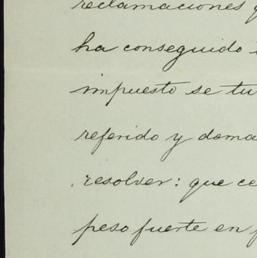 reclamaciones
ha conseguido
impuesto se tu
referido y dema
resolver: que ce
peso fuerte en